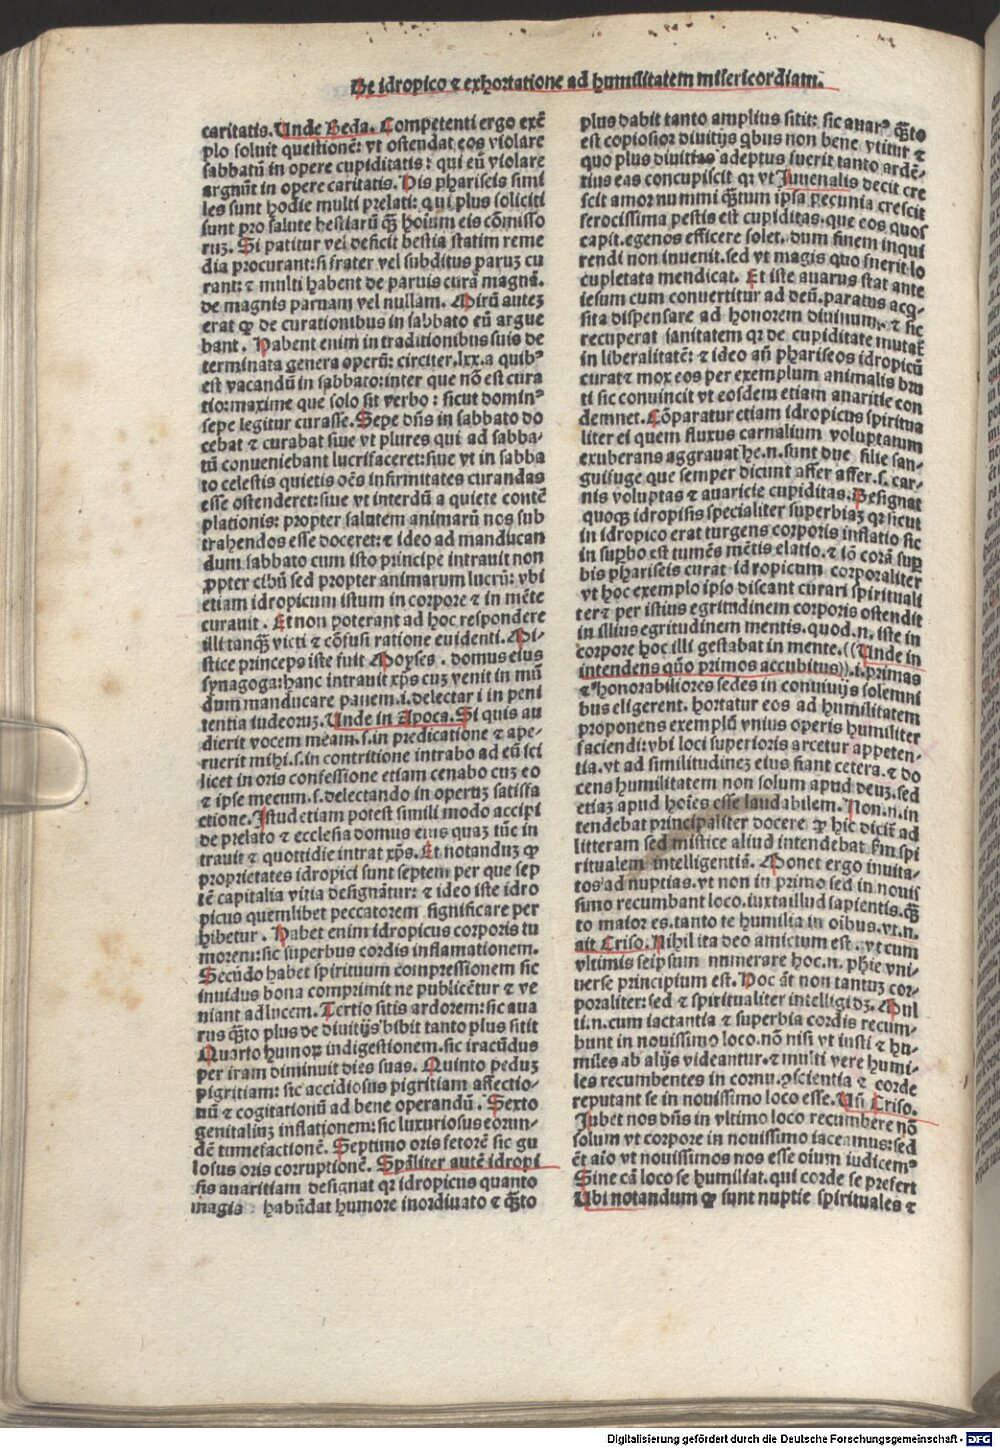 De idropico ⁊ exhortatione ad humilitatem misericordiam.
caritatis. Unde Beda. Competenti ergo exē
plo soluit questionē: vt ostendat eos violare
sabbatū in opere cupiditatis: qui eū violare
argnūt in opere caritatis. His phariseis simi
les sunt hodie multi prelati: qui plus soliciti
sunt pro salute bestiarū qȝ hoium eis cōmisso
ruȝ. Si patitur vel deficit bestia statim reme
dia procurant: si frater vel subditus paruȝ cu
rant: ⁊ multi habent de paruis curā magnā.
de magnis paruam vel nullam. Mirū auteȝ
erat ꝙ de curationibus in sabbato eū argue
bant. Habent enim in traditionibus suis de
terminata genera operū: circiter.lxx.a quibꝰ
est vacandū in sabbato: inter que nō est cura
tio: maxime que solo fit verbo: sicut dominꝰ
sepe legitur curasse. Sepe dn̄s in sabbato do
cebat ⁊ curabat siue vt plures qui ad sabba-
tū conueniebant lucrifaceret: siue vt in sabba
to celestis quietis oēs infirmitates curandas
esse ostenderet: siue vt interdū a quiete contē
plationis: propter salutem animarū nos sub
trahendos esse doceret: ⁊ ideo ad manducan
dum sabbato cum isto principe intrauit non
ꝓpter cibū sed propter animarum lucrū: vbi
etiam idropicum istum in corpore ⁊ in mēte
curauit. Et non poterant ad hoc respondere
illi tanqȝ victi ⁊ cōfusi ratione euidenti. Mi-
stice princeps iste fuit Moyses. domus eius
synagoga: hanc intrauit xp̄s cuȝ venit in mū
dum manducare panem.i.delectari in peni
tentia iudeoruȝ. Unde in Apoca. Si quis au
dierit vocem meam.s.in predicatione ⁊ ape-
ruerit mihi.s.in contritione intrabo ad eū sci
licet in oris confessione etiam cenabo cuȝ eo
⁊ ipse mecum.s.delectando in operuȝ satisfa
ctione. Istud etiam potest simili modo accipi
de prelato ⁊ ecclesia domus eius quaȝ tūc in
trauit ⁊ quottidie intrat xp̄s. Et notanduȝ ꝙ
proprietates idropici sunt septem per que sep
tē capitalia vitia designātur: ⁊ ideo iste idro
picus quemlibet peccatorem significare per
hibetur. Habet enim idropicus corporis tu
morem: sic superbus cordis inflamationem.
Secūdo habet spirituum compressionem sic
inuidus bona comprimit ne publicētur ⁊ ve
niant ad lucem. Tertio sitis ardorem: sic aua
rus qȝto plus de diuitijs bibit tanto plus sitit
Quarto humoȝ indigestionem. sic iracūdus
per iram diminuit dies suas. Quinto peduȝ
pigritiam: sic accidiosus pigritiam affectio-
nū ⁊ cogitationū ad bene operandū. Sexto
genitaliuȝ inflationem: sic luxuriosus eorun-
dē tumefactionē. Septimo oris fetorē sic gu
losus oris corruptionē. Spāliter autē idropi
sis auaritiam designat qꝛ idropicus quanto
magis habūdat humore inordinato ⁊ qȝto
plus dabit tanto amplius sitit: sic auarꝰ qȝto
est copiosioꝛ diuitijs qbus non bene vtitur ⁊
quo plus diuitias adeptus fuerit tanto ardē-
tius eas concupiscit qꝛ vt Juuenalis decit cre
scit amor nummi qȝtum ipsa pecunia crescit
ferocissima pestis est cupiditas. que eos quos
capit. egenos efficere solet. dum finem inqui
rendi non inuenit. sed vt magis quo fuerit lo
cupletata mendicat. Et iste auarus stat ante
iesum cum conuertitur ad deū. paratus acq-
sita dispensare ad honorem diuinum. ⁊ sic
recuperat sanitatem qꝛ de cupiditate mutat
in liberalitatē: ⁊ ideo an̄ phariseos idropicū
curat ⁊ mox eos per exemplum animalis bru
ti sic conuincit vt eosdem etiam auaritie con
demnet. Cōparatur etiam idropicus spiritua
liter ei quem fluxus carnalium voluptatum
exuberans aggrauat he.n.sunt due filie san-
guisuge que semper dicunt affer affer.s.car-
nis voluptas ⁊ auaricie cupiditas. Designat
quoqȝ idropisis specialiter superbiaȝ qꝛ sicut
in idropico erat turgens corporis inflatio sic
in supbo est tumēs mētis elatio. ⁊ iō corā sup
bis phariseis curat idropicum corporaliter
vt hoc exemplo ipso discant curari spirituali
ter ⁊ per istius egritudinem corporis ostendit
in illius egritudinem mentis. quod.n.iste in
corpore hoc illi gestabat in mente. ((Unde in
intendens quō primos accubitus)).i.primas
⁊ honorabiliores sedes in conuiuijs solemni
bus eligerent. hortatur eos ad humilitatem
proponens exemplū vnius operis humiliter
faciendi: vbi loci superioris arcetur appeten-
tia. vt ad similitudineȝ eius fiant cetera. ⁊ do
cens humilitatem non solum apud deuȝ. sed
etiaȝ apud hoīes esse laudabilem. Non.n.in
tendebat principaliter docere ꝙ hic dicit̄ ad
litteram sed mistice aliud intendebat ẜm spi
ritualem intelligentiā. Monet ergo inuita-
tos ad nuptias. vt non in primo sed in nouis
simo recumbant loco. iuxta illud sapientis. qȝ
to maior es. tanto te humilia in oibus. vt.n.
ait Criso. Nihil ita deo amictum est. vt cum
vltimis seipsum numerare hoc.n.phie vni-
uerse principium est. Hoc āt non tantuȝ cor-
poraliter: sed ⁊ spiritualiter intelligi dȝ. Mul
ti.n.cum iactantia ⁊ superbia cordis recum-
bunt in nouissimo loco. nō nisi vt iusti ⁊ hu-
miles ab alijs videantur. ⁊ multi vere humi-
les recumbentes in cornu. ꝯscientia ⁊ corde
reputant se in nouissimo loco esse. Un̄ Criso.
Jubet nos dn̄s in vltimo loco recumbere nō
solum vt corpore in nouissimo iaceamus: sed
ēt aīo vt nouissimos nos esse oium iudicemꝰ
Sine cā loco se humiliat. qui corde se prefert
Ubi notandum ꝙ sunt nuptie spirituales ⁊
Digitalisierung gefördert durch die Deutsche Forschungsgemeinschaft - DFG